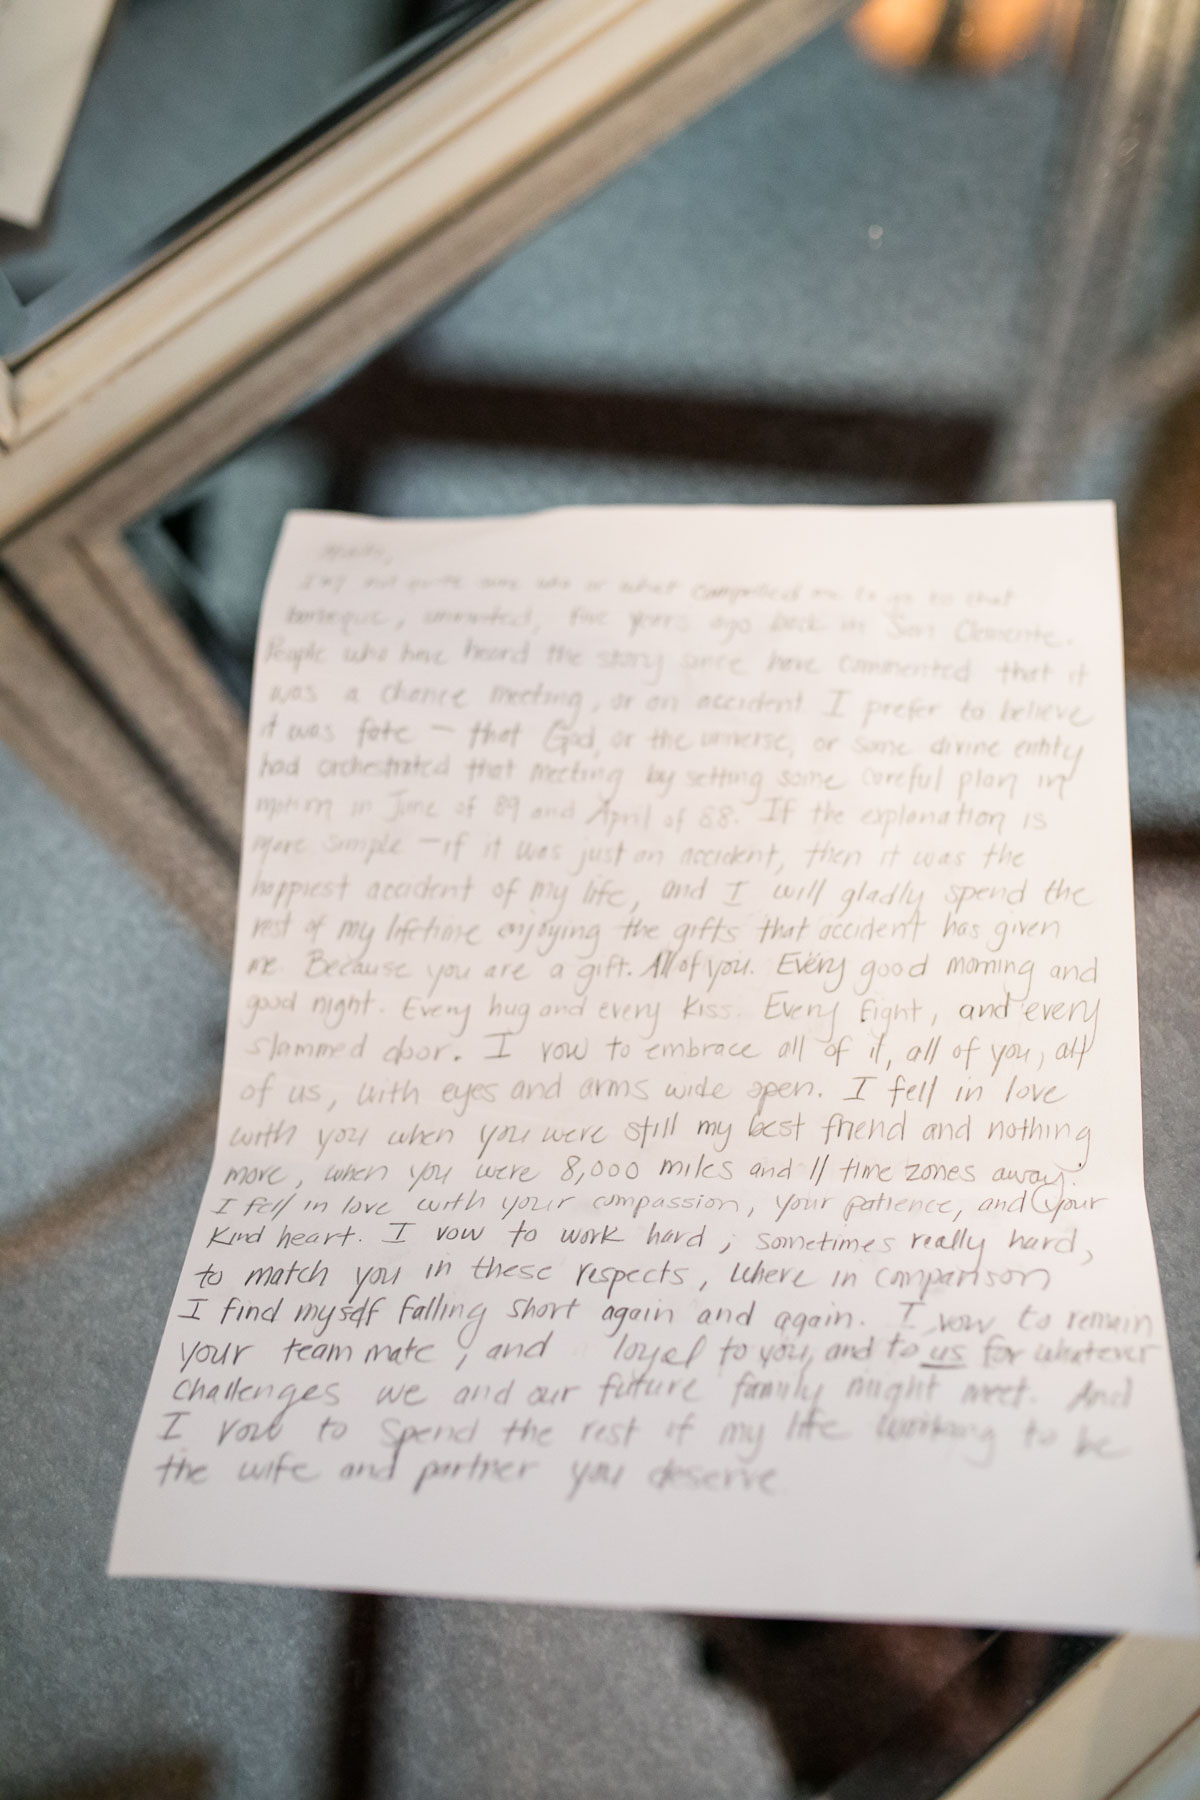 I'm not quite sure who or what compelled me to go to that
barbeque, uninvited, five years ago back in San Clemente.
People who have heard the story since have commented that it
was a chance meeting, or an accident I prefer to believe
it was fate — that God, or the universe, or some divine entity
had orchestrated that meeting by setting some careful plan in
motion in June of 89 and April of 88. If the explanation is
more simple — if it was just an accident, then it was the
happiest accident of my life, and I will gladly spend the
rest of my lifetime enjoying the gifts that accident has given
me. Because you are a gift. All of you. Every good morning and
good night. Every hug and every kiss. Every fight, and every
slammed door. I vow to embrace all of it, all of you, all
of us, with eyes and arms wide open. I fell in love
with you when you were still my best friend and nothing
more, when you were 8,000 miles and 11 time zones away.
I fell in love with your compassion, your patience, and your
kind heart. I vow to work hard, sometimes really hard,
to match you in these respects, where in comparison
I find myself falling short again and again. I vow to remain
your teammate, and loyal to you, and to us for whatever
challenges we and our future family might meet. And
I vow to spend the rest of my life working to be
the wife and partner you deserve